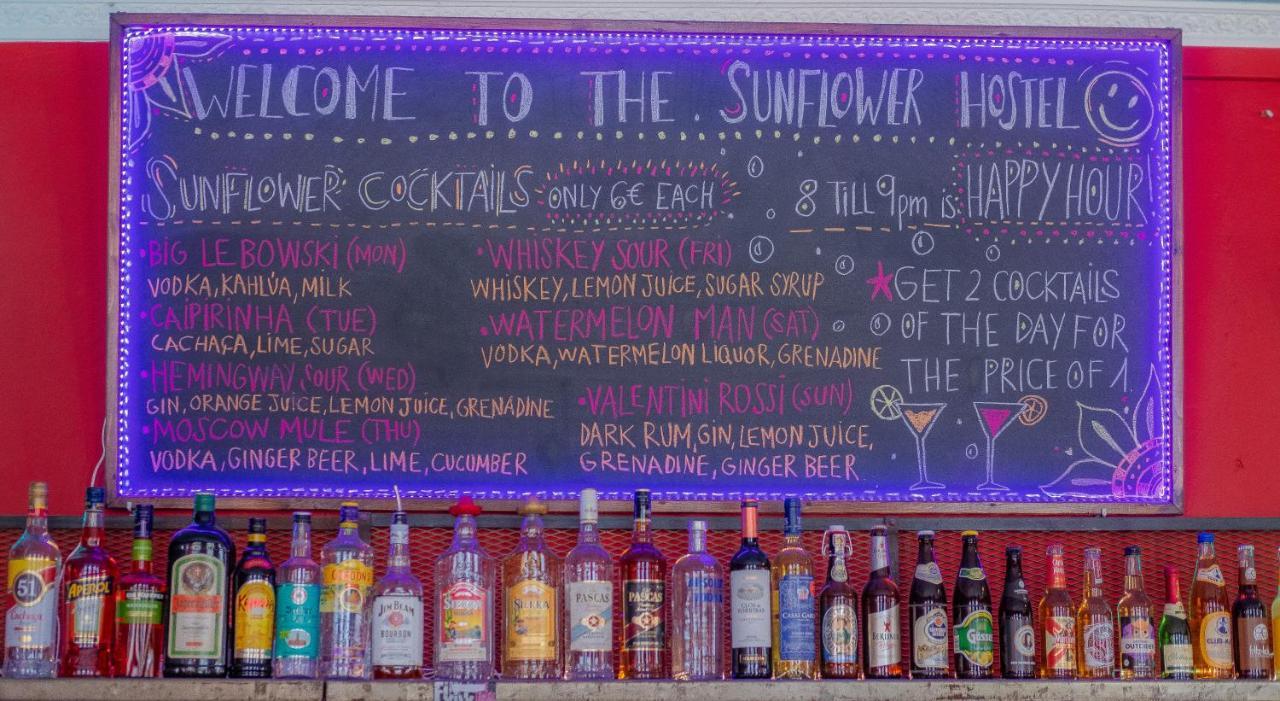 WELCOME TO THE SUNFLOWER HOSTEL
SUNFLOWER COCKTAILS ONLY 6€ EACH
8 TILL 9pm is HAPPY HOUR
• BIG LEBOWSKI (MON)
VODKA, KAHLÚA, MILK
• CAIPIRINHA (TUE)
CACHAÇA, LIME, SUGAR
• HEMINGWAY SOUR (WED)
GIN, ORANGE JUICE, LEMON JUICE, GRENADINE
• MOSCOW MULE (THU)
VODKA, GINGER BEER, LIME, CUCUMBER
• WHISKEY SOUR (FRI)
WHISKEY, LEMON JUICE, SUGAR SYRUP
• WATERMELON MAN (SAT)
VODKA, WATERMELON LIQUOR, GRENADINE
• VALENTINI ROSSI (SUN)
DARK RUM, GIN, LEMON JUICE,
GRENADINE, GINGER BEER
GET 2 COCKTAILS
OF THE DAY FOR
THE PRICE OF 1.
51
APEROL
JIM BEAM
BOURBON
SIERRA
SIERRA
PASCAS
PASCAS
ABSOLUT
BERLINER